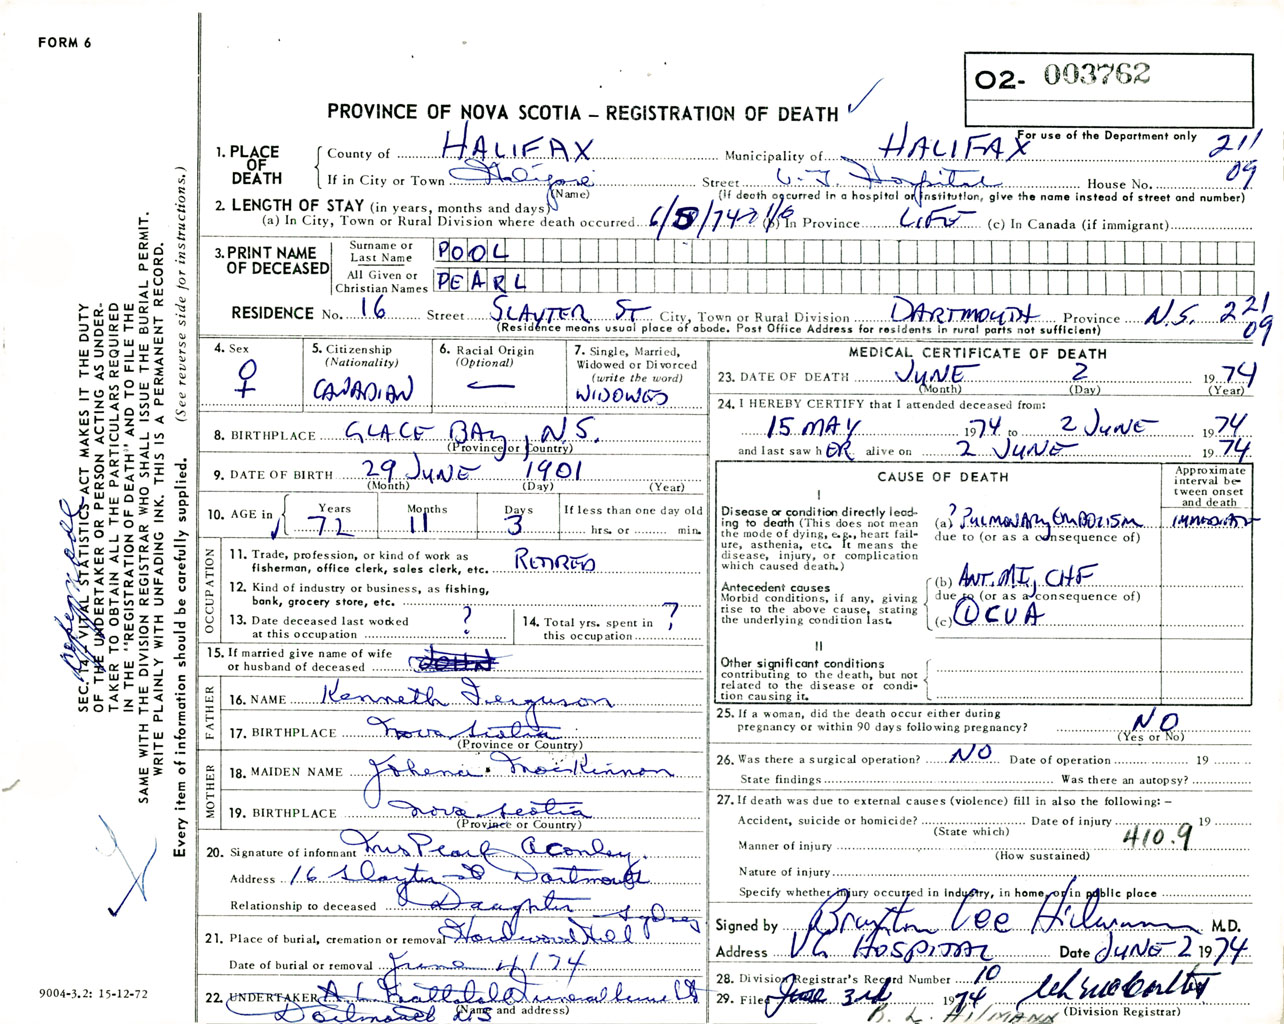 FORM 6
O2- 003762
PROVINCE OF NOVA SCOTIA – REGISTRATION OF DEATH
For use of the Department only
211
09
1. PLACE OF DEATH
County of HALIFAX Municipality of HALIFAX
If in City or Town Street V.G. Hospital House No.
(Name) (If death occurred in a hospital or institution, give the name instead of street and number)
2. LENGTH OF STAY (in years, months and days)
(a) In City, Town or Rural Division where death occurred 6/5/74 (b) In Province LIFE (c) In Canada (if immigrant)
3. PRINT NAME OF DECEASED
Surname or Last Name POOL
All Given or Christian Names PEARL
RESIDENCE No. 16 Street SLAYTER ST City, Town or Rural Division DARTMOUTH Province N.S. 221
09
(Residence means usual place of abode. Post Office Address for residents in rural parts not sufficient)
4. Sex ♀
5. Citizenship (Nationality) CANADIAN
6. Racial Origin (Optional) —
7. Single, Married, Widowed or Divorced (write the word) WIDOWED
8. BIRTHPLACE GLACE BAY, N.S.
(Province or Country)
9. DATE OF BIRTH 29 JUNE 1901
(Month) (Day) (Year)
10. AGE in Years 72 Months 11 Days 3 If less than one day old hrs. or min.
OCCUPATION
11. Trade, profession, or kind of work as fisherman, office clerk, sales clerk, etc. RETIRED
12. Kind of industry or business, as fishing, bank, grocery store, etc.
13. Date deceased last worked at this occupation ?
14. Total yrs. spent in this occupation ?
15. If married give name of wife or husband of deceased JOHN
FATHER
16. NAME Kenneth Ferguson
17. BIRTHPLACE Nova Scotia
(Province or Country)
MOTHER
18. MAIDEN NAME Johena MacKinnon
19. BIRTHPLACE Nova Scotia
(Province or Country)
20. Signature of informant Mrs Pearl Aconley.
Address 16 Slayter St Dartmouth
Relationship to deceased Daughter
21. Place of burial, cremation or removal Hardwood Hill Sydney
Date of burial or removal June 4/74
22. UNDERTAKER Funeral Home
(Name and address)
Dartmouth NS
MEDICAL CERTIFICATE OF DEATH
23. DATE OF DEATH JUNE 2 1974
(Month) (Day) (Year)
24. I HEREBY CERTIFY that I attended deceased from:
15 MAY 1974 to 2 JUNE 1974
and last saw hER alive on 2 JUNE 1974
CAUSE OF DEATH
Approximate interval between onset and death
I
Disease or condition directly leading to death (This does not mean the mode of dying, e.g., heart failure, asthenia, etc. It means the disease, injury, or complication which caused death.)
(a) ? PULMONARY EMBOLISM IMMEDIATE
due to (or as a consequence of)
Antecedent causes
Morbid conditions, if any, giving rise to the above cause, stating the underlying condition last.
(b) ANT. M.I., CHF
due to (or as a consequence of)
(c) CVA
II
Other significant conditions contributing to the death, but not related to the disease or condition causing it.
25. If a woman, did the death occur either during pregnancy or within 90 days following pregnancy? NO
(Yes or No)
26. Was there a surgical operation? NO Date of operation 19
State findings Was there an autopsy?
27. If death was due to external causes (violence) fill in also the following: –
Accident, suicide or homicide? Date of injury 19
(State which)
410.9
Manner of injury
(How sustained)
Nature of injury
Specify whether injury occurred in industry, in home, or in public place
Signed by Brayton Lee Hilmann M.D.
Address VG HOSPITAL Date JUNE 2 1974
28. Division Registrar's Record Number 10
29. Filed June 3rd 1974
(Division Registrar)
B. L. HILMANN
SEC. 14. VITAL STATISTICS ACT MAKES IT THE DUTY
OF THE UNDERTAKER OR PERSON ACTING AS UNDER-
TAKER TO OBTAIN ALL THE PARTICULARS REQUIRED
IN THE "REGISTRATION OF DEATH" AND TO FILE THE
SAME WITH THE DIVISION REGISTRAR WHO SHALL ISSUE THE BURIAL PERMIT.
WRITE PLAINLY WITH UNFADING INK. THIS IS A PERMANENT RECORD.
Every item of information should be carefully supplied. (See reverse side for instructions.)
9004-3.2: 15-12-72